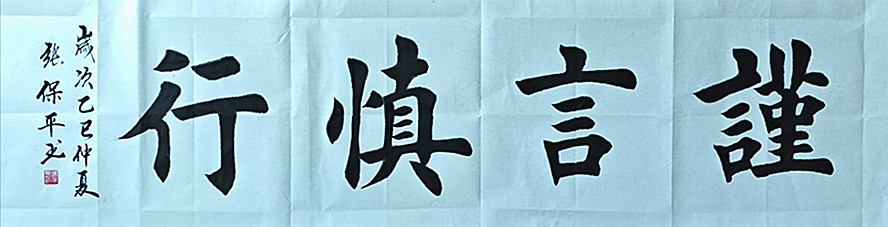 謹言慎行
歲次乙巳仲夏
張保平书